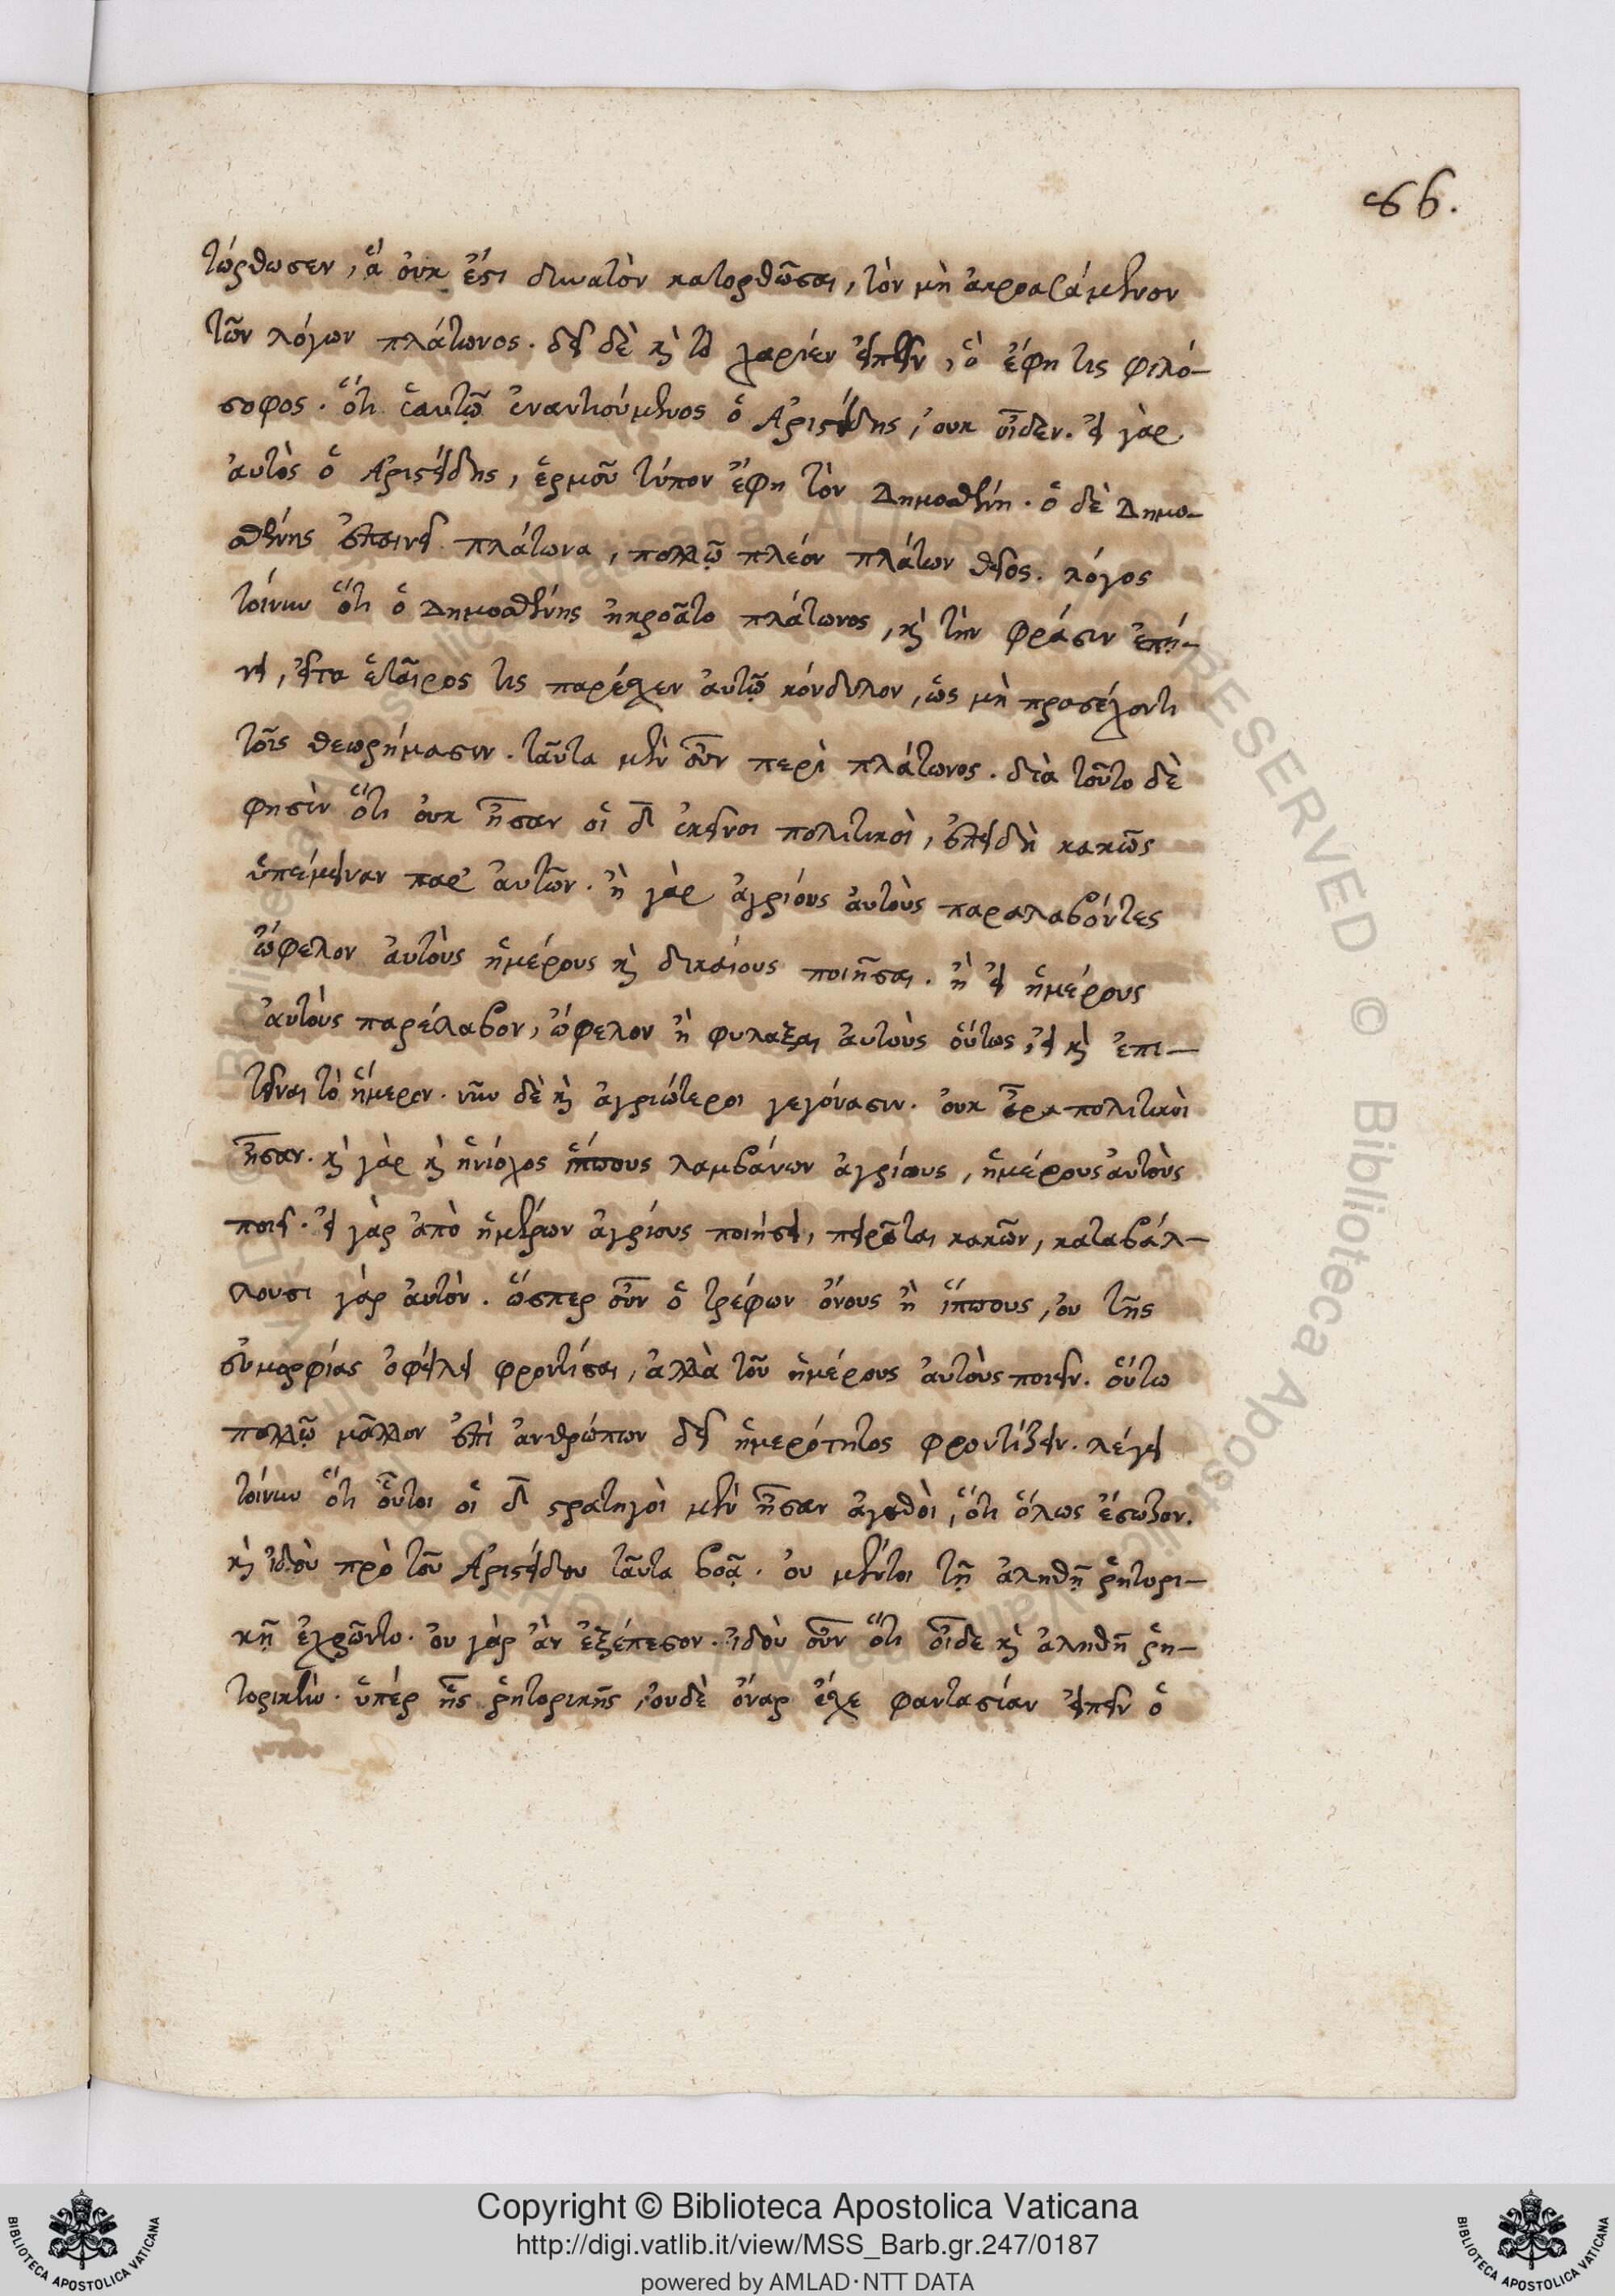 86.
τώρθωσεν, ἃ οὐκ ἔστι δυνατὸν κατορθῶσαι, τὸν μὴ ἀκροασάμενον
τῶν λόγων πλάτωνος. δεῖ δὲ κὴ τὸ χαρίεν εἰπεῖν, ὃ ἔφη τις φιλό-
σοφος. ὅτι ἑαυτῷ ἐναντιούμενος ὁ Ἀριστείδης, οὐκ οἶδεν. εἰ γὰρ
αὐτὸς ὁ Ἀριστείδης, ἑρμοῦ τύπον ἔφη τὸν Δημοσθένη. ὁ δὲ Δημο-
σθένης ἐπαινεῖ πλάτωνα, πολλῷ πλέον πλάτων θεῖος. λόγος
τοίνυν ὅτι ὁ Δημοσθένης ἠκροᾶτο πλάτωνος, κὴ τὴν φράσιν ἐπῄ-
νει, εἶτα ἑταῖρος τις παρέσχεν αὐτῷ κόνδυλον, ὡς μὴ προσέχοντι
τοῖς θεωρήμασιν. ταῦτα μὲν οὖν περὶ πλάτωνος. διὰ τοῦτο δὲ
φησὶν ὅτι οὐκ ἦσαν οἱ δ̅ ἐκεῖνοι πολιτικοὶ, ἐπειδὴ κακῶς
ὑπέμειναν παρ' αὐτῶν. ἢ γὰρ ἀγρίους αὐτοὺς παραλαβόντες
ὤφελον αὐτοὺς ἡμέρους κὴ δικαίους ποιῆσαι. ἢ εἰ ἡμέρους
αὐτοὺς παρέλαβον, ὤφελον ἢ φυλάξαι αὐτοὺς οὕτως, εἰ κὴ ἐπι-
τεῖναι τὸ ἥμερον. νῦν δὲ κὴ ἀγριώτεροι γεγόνασιν. οὐκ ἆρα πολιτικοὶ
ἦσαν. κὴ γὰρ κὴ ἡνίοχος ἵππους λαμβάνων ἀγρίους, ἡμέρους αὐτοὺς
ποιεῖ. εἰ γὰρ ἀπὸ ἡμέρων ἀγρίους ποιήσει, πειρᾶται κακῶν, καταβάλ-
λουσι γὰρ αὐτὸν. ὥσπερ οὖν ὁ τρέφων ὄνους ἢ ἵππους, οὐ τῆς
εὐμορφίας ὀφείλει φροντίσαι, ἀλλὰ τοῦ ἡμέρους αὐτοὺς ποιεῖν. οὕτω
πολλῷ μᾶλλον ἐπὶ ἀνθρώπων δεῖ ἡμερότητος φροντίζειν. λέγει
τοίνυν ὅτι οὗτοι οἱ δ̅ στρατηγοὶ μὲν ἦσαν ἀγαθοὶ, ὅτι ὅλως ἔσωζον.
κὴ ἰδοὺ πρὸ τοῦ Ἀριστείδου ταῦτα βοᾷ. οὐ μέντοι τῇ ἀληθῇ ῥητορι-
κῇ ἐχρῶντο. οὐ γὰρ ἂν ἐξέπεσον. ἰδοὺ οὖν ὅτι οἶδε κὴ ἀληθῆ ῥη-
τορικὴν. ὑπέρ ἧς ῥητορικῆς, οὐδὲ ὄναρ ἔσχε φαντασίαν εἰπεῖν ὁ
Copyright © Biblioteca Apostolica Vaticana
http://digi.vatlib.it/view/MSS_Barb.gr.247/0187
powered by AMLAD·NTT DATA